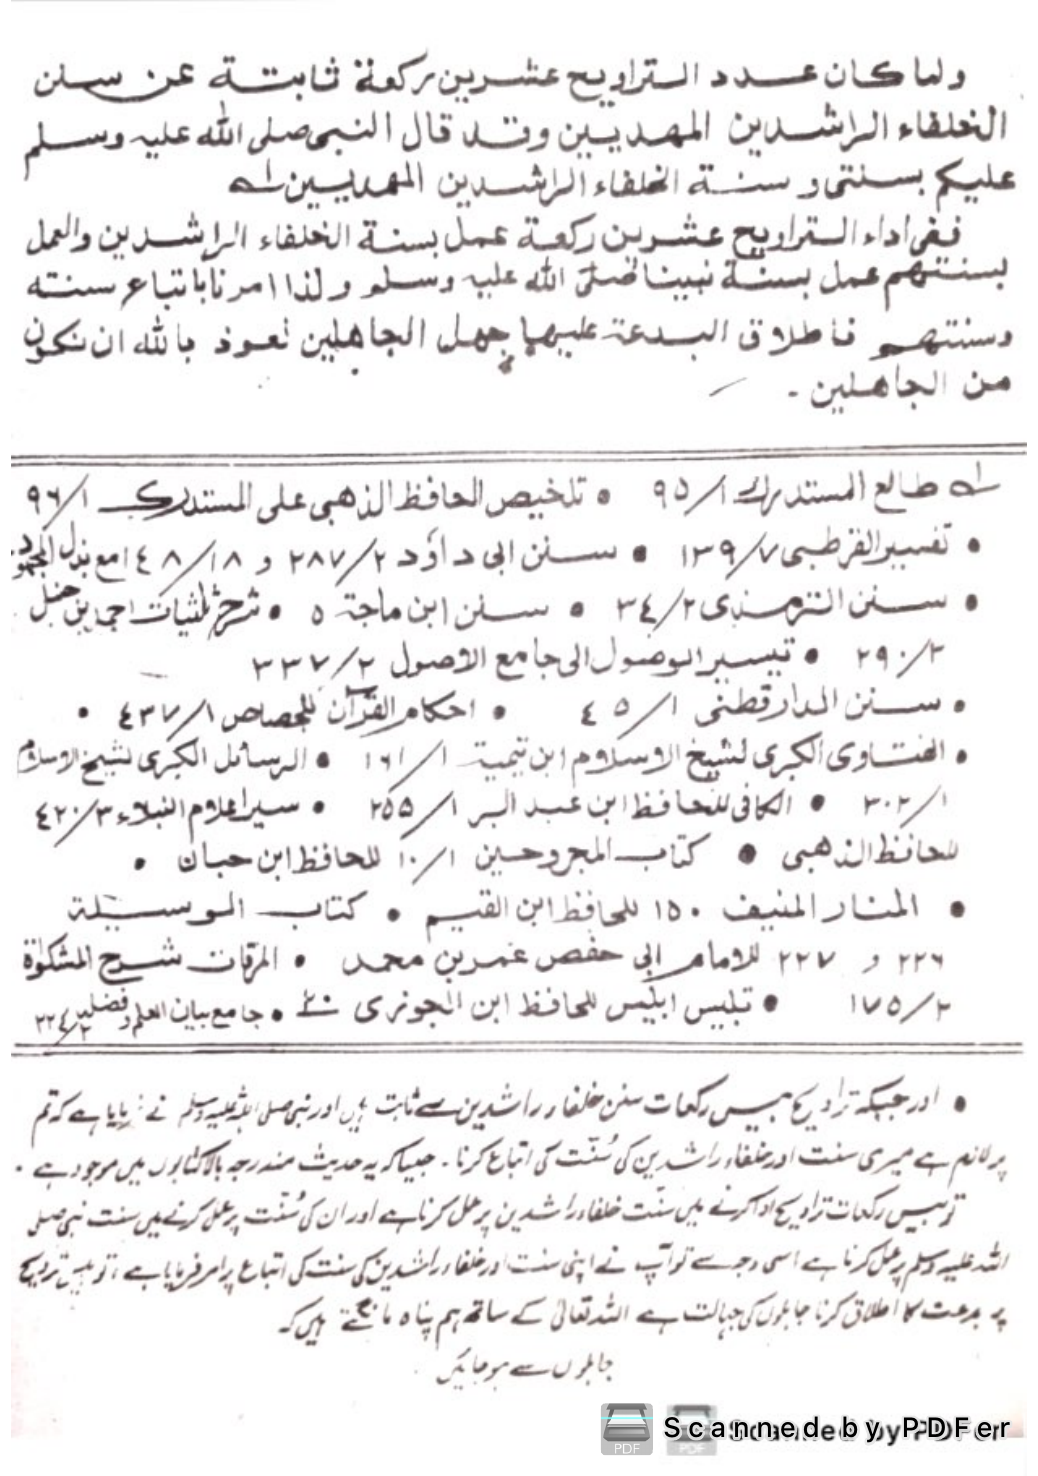 ولما كان عدد التراويح عشرين ركعة ثابتة عن سنن
الخلفاء الراشدين المهديين وقد قال النبى صلى الله عليه وسلم
عليكم بسنتى و سنة الخلفاء الراشدين المهديين لـه
ففى اداء التراويح عشرين ركعة عمل بسنة الخلفاء الراشدين والعمل
بسنتهم عمل بسنة نبينا صلى الله عليه وسلم ولذا امرنا باتباع سنته
وسنتهم فاطلاق البدعة عليها جهل الجاهلين نعوذ بالله ان نكون
من الجاهلين ۔
لـه طالع المستدرك ۱/۹۵ • تلخيص الحافظ الذهبى على المستدرك ۱/۹۶
• تفسير القرطبى ۷/۱۳۹ • سنن ابى داؤد ۲/۲۸۷ و ۱۸/۱۴۸ مع بذل المجهود
• سنن الترمذى ۲/۳۴ • سنن ابن ماجة ۵ • شرح ثلثيات احمد بن حنبل
۲/۲۹۰ • تيسير الوصول الى جامع الاصول ۲/۳۳۷
• سنن الدارقطنى ۱/۴۵ • احكام القرآن للجصاص ۱/۴۳۷ •
• الفتاوى الكبرى لشيخ الاسلام ابن تيمية ۱/۱۶۱ • الرسائل الكبرى لشيخ الاسلام
۱/۳۰۲ • الكافى للحافظ ابن عبد البر ۱/۲۵۵ • سير اعلام النبلاء ۳/۴۲۰
للحافظ الذهبى • كتاب المجروحين ۱/۱۰ للحافظ ابن حبان •
• المنار المنيف ۱۵۰ للحافظ ابن القيم • كتاب الوسيلة
۲۲۶ و ۲۲۷ للامام ابى حفص عمر بن محمد • المرقات شرح المشكوٰة
۲/۱۷۵ • تبليس ابليس للحافظ ابن الجوزى • جامع بيان العلم وفضله ۲/۲۲۴
• اور جبکہ تراویح بیس رکعات سنن خلفاء راشدین سے ثابت ہیں اور نبی صلی اللہ علیہ وسلم نے فرمایا ہے کہ تم
پر لازم ہے میری سنت اور خلفاء راشدین کی سُنّت کی اتباع کرنا۔ جیسا کہ یہ حدیث مندرجہ بالا کتابوں میں موجود ہے ۔
تو بیس رکعات تراویح ادا کرنے میں سنّت خلفاء راشدین پر عمل کرنا ہے اور ان کی سُنّت پر عمل کرنے میں سنت نبی صلی
اللہ علیہ وسلم پر عمل کرنا ہے اسی وجہ سے تو آپ نے اپنی سنت اور خلفاء راشدین کی سنت کی اتباع پر امر فرمایا ہے ، تو بیس تراویح
پر بدعت کا اطلاق کرنا جاہلوں کی جہالت ہے اللہ تعالیٰ کے ساتھ ہم پناہ مانگتے ہیں کہ
جاہلوں سے ہو جائیں
Scanned by PDFer